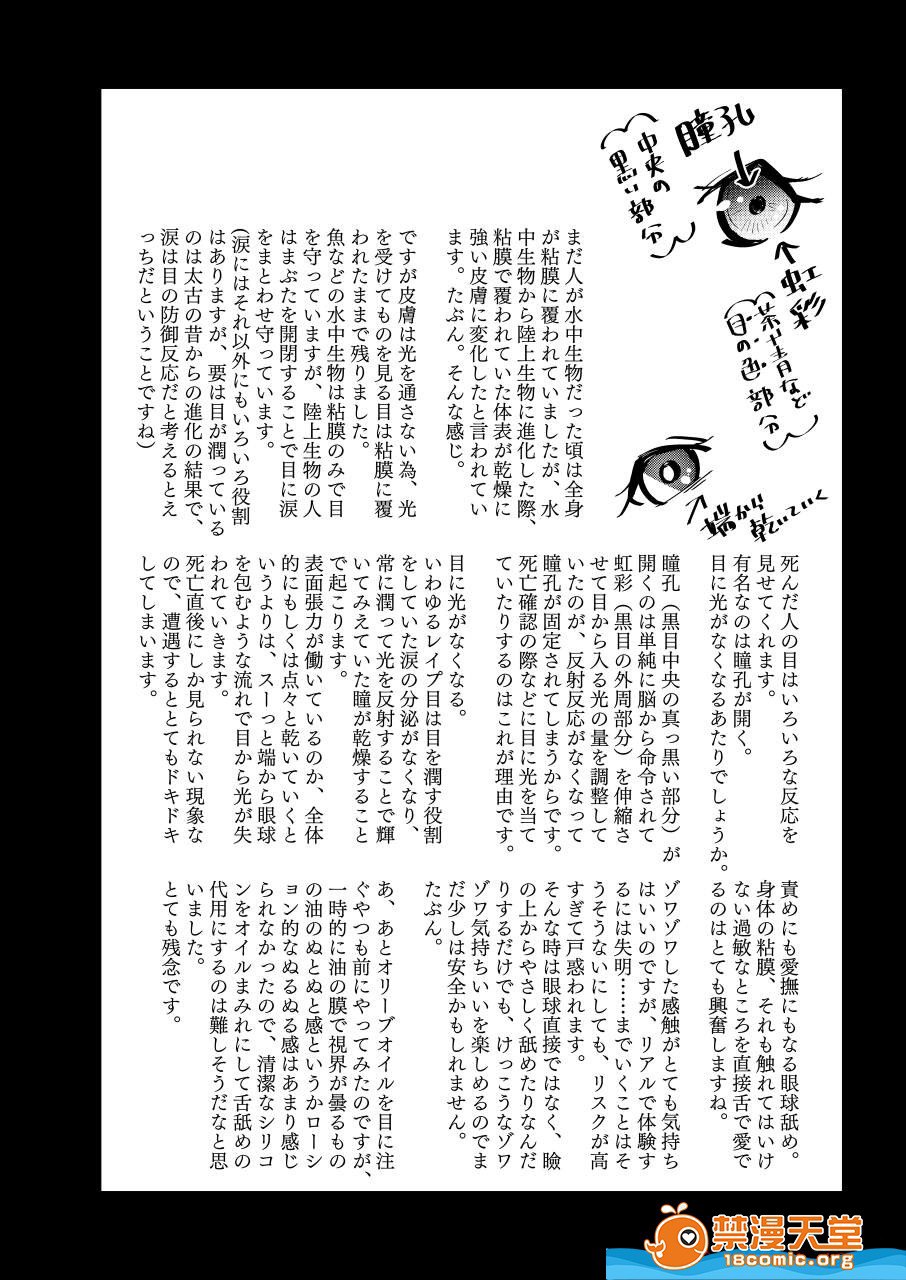 瞳孔
中央の
黒い部分
虹彩
茶や青など
目の色部分
端から
乾いていく
まだ人が水中生物だった頃は全身
が粘膜に覆われていましたが、水
中生物から陸上生物に進化した際、
粘膜で覆われていた体表が乾燥に
強い皮膚に変化したと言われてい
ます。たぶん。そんな感じ。
ですが皮膚は光を通さない為、光
を受けてものを見る目は粘膜に覆
われたままで残りました。
魚などの水中生物は粘膜のみで目
を守っていますが、陸上生物の人
はまぶたを開閉することで目に涙
をまとわせ守っています。
(涙にはそれ以外にもいろいろ役割
はありますが、要は目が潤っている
のは太古の昔からの進化の結果で、
涙は目の防御反応だと考えるとえ
っちだということですね)
死んだ人の目はいろいろな反応を
見せてくれます。
有名なのは瞳孔が開く。
目に光がなくなるあたりでしょうか。
瞳孔（黒目中央の真っ黒い部分）が
開くのは単純に脳から命令されて
虹彩（黒目の外周部分）を伸縮さ
せて目から入る光の量を調整して
いたのが、反射反応がなくなって
瞳孔が固定されてしまうからです。
死亡確認の際などに目に光を当て
ていたりするのはこれが理由です。
目に光がなくなる。
いわゆるレイプ目は目を潤す役割
をしていた涙の分泌がなくなり、
常に潤って光を反射することで輝
いてみえていた瞳が乾燥すること
で起こります。
表面張力が働いているのか、全体
的にもしくは点々と乾いていくと
いうよりは、スーっと端から眼球
を包むような流れで目から光が失
われていきます。
死亡直後にしか見られない現象な
ので、遭遇するととてもドキドキ
してしまいます。
責めにも愛撫にもなる眼球舐め。
身体の粘膜、それも触れてはいけ
ない過敏なところを直接舌で愛で
るのはとても興奮しますね。
ゾワゾワした感触がとても気持ち
はいいのですが、リアルで体験す
るには失明……までいくことはそ
うそうないにしても、リスクが高
すぎて戸惑われます。
そんな時は眼球直接ではなく、瞼
の上からやさしく舐めたりなんだ
りするだけでも、けっこうなゾワ
ゾワ気持ちいいを楽しめるのでま
だ少しは安全かもしれません。
たぶん。
あ、あとオリーブオイルを目に注
ぐやつも前にやってみたのですが、
一時的に油の膜で視界が曇るもの
の油のぬとぬと感というかローシ
ョン的なぬるぬる感はあまり感じ
られなかったので、清潔なシリコ
ンをオイルまみれにして舌舐めの
代用にするのは難しそうだなと思
いました。
とても残念です。
禁漫天堂
18comic.org